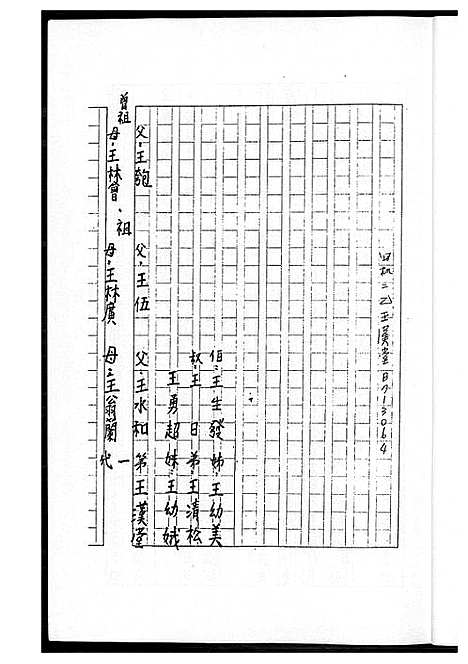 四機三乙王漢堂B713064
伯:王生發 姊:王幼美
叔:王日 弟:王清松
王勇超 妹:王幼娥
父:王匏 父:王伍 父:王水和 第王漢堂
曾祖 祖 一
母:王林曾、 母:王林廣 母:王翁蘭 代